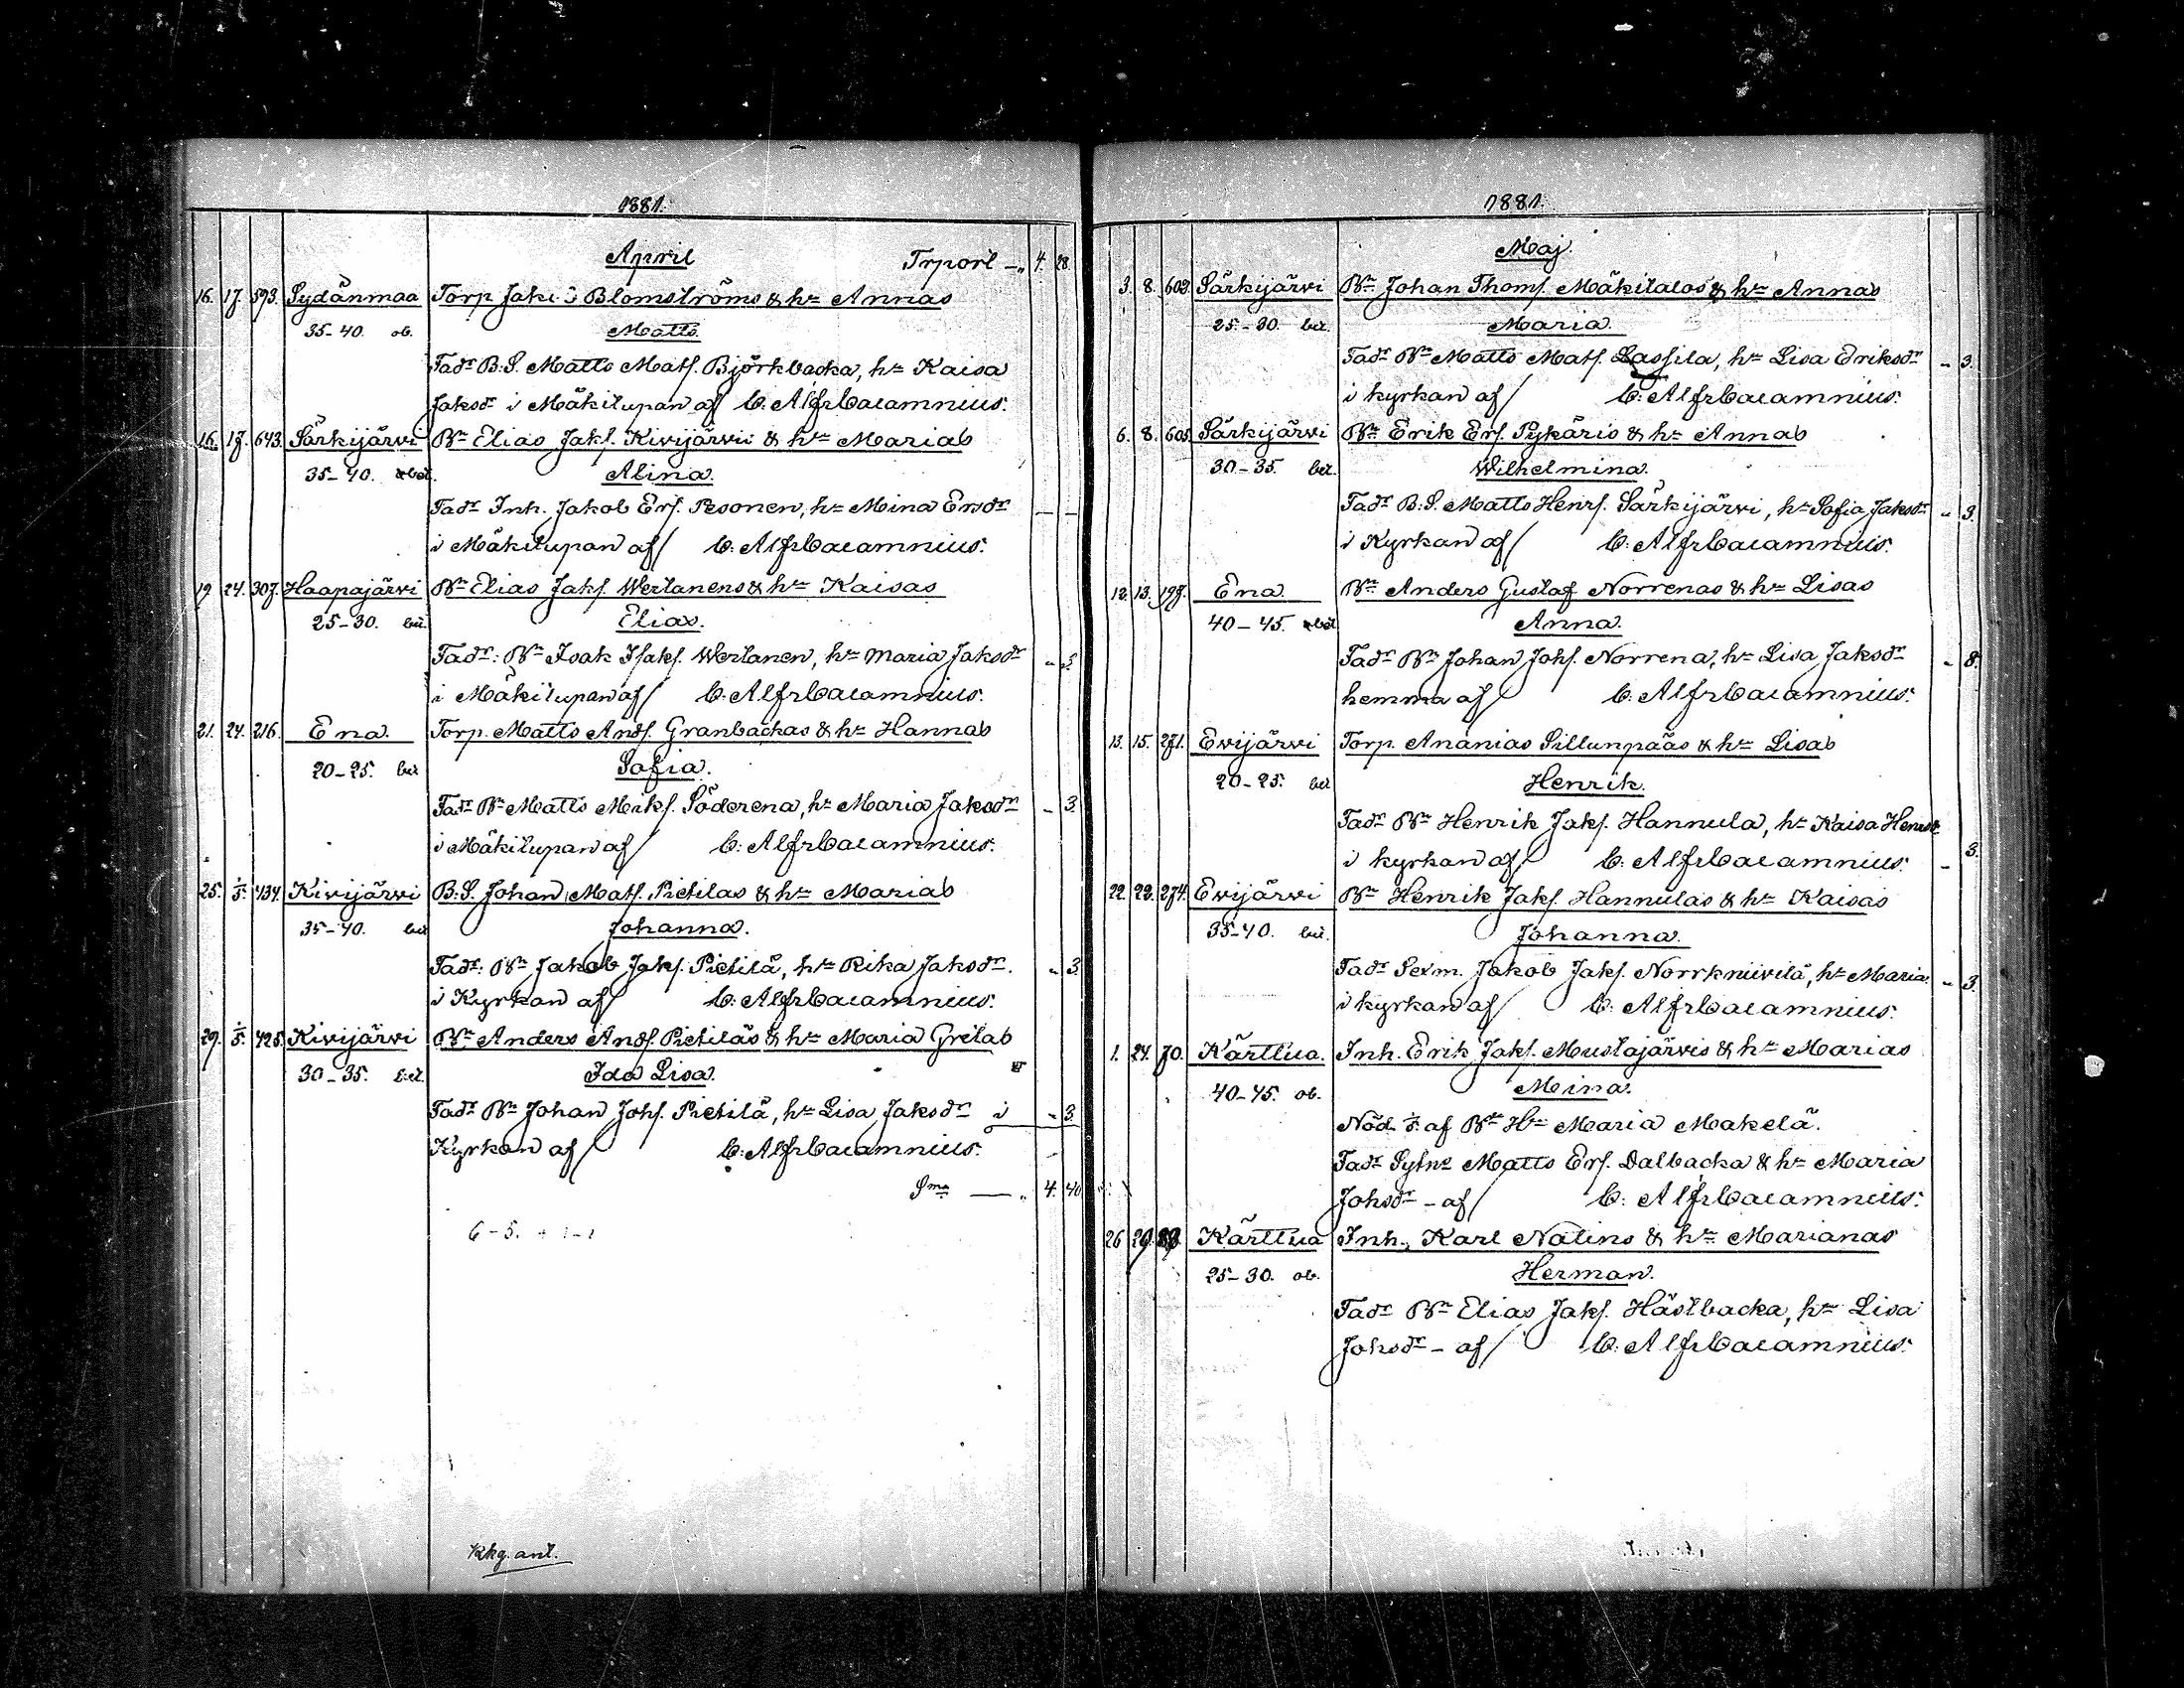 1881.
April Trport — „ 4. 28.
16. 17. 593. Sydänmaa Torp. Blomströms & hu Annas
35-40. ob. Matts.
Fadr B.S. Matts Mats. Björkbacka, hu Kaisa
Jaksdr i Mäkitupan af C: Alfr Calamnius.
16. 17. 643. Särkijärvi Bn Elias Jaks. Kivijärvis & hu Marias
35-40. Alina.
Fadr Inh. Jakob Ers. Pesonen, hu Mina Ersdr — —
i Mäkitupan af C: Alfr Calamnius.
19 24. 307. Haapajärvi Bn Elias Jaks. Wertanens & hu Kaisas
25-30. bet. Elias.
Fadr: Bn Isak Isaks. Wertanen, hu Maria Jaksdr - 3
i Mäkitupan af C: Alfr Calamnius.
21. 24. 216. Ena. Torp. Matts Ands. Granbackas & hu Hannas
20-25. bet Sofia.
Fadr Bn Matts Söderena, hu Maria Jaksdr - 3.
i Mäkitupan af C: Alfr Calamnius.
25. 1/5. 434. Kivijärvi B.S. Johan Mats. Pietilas & hu Marias
35-40. bet Johanna.
Fadr: Bn Jakob Jaks. Pietilä, hu Rika Jaksdr. - 3.
i Kyrkan af C: Alfr Calamnius.
29. 1/5. 425. Kivijärvi Bn Anders Ands. Pietiläs & hu Maria Gretas
30-35. bet. Ida Lisa.
Fadr Bn Johan Johs. Pietilä, hu Lisa Jaksdr i - 3.
Kyrkan af C: Alfr Calamnius.
Sma — „ 4. 40
6-5.
Kkg. ant.
1881.
Maj.
3. 8. 602. Särkijärvi Bn Johan Thoms. Mäkitalos & hu Annas
25-30. bet. Maria.
Fadr Bn Matts Mats. Lassila, hu Lisa Eriksdr - 3.
i kyrkan af C: Alfr Calamnius.
6. 8. 605. Särkijärvi Bn Erik Ers. Pykäris & hu Annas
30-35. bet. Wilhelmina.
Fadr B.S. Matts Henrs. Särkijärvi, hu Sofia Jaksdr - 3.
i Kyrkan af C: Alfr Calamnius.
12. 13. 197. Ena Bn Anders Gustaf Norrenas & hu Lisas
40-45. Anna.
Fadr Bn Johan Johs. Norrena, hu Lisa Jaksdr - 8.
hemma af C: Alfr Calamnius.
13. 15. 271. Evijärvi Torp. Ananias Sillunpääs & hu Lisas
20-25. bet Henrik.
Fadr Bn Henrik Jaks. Hannula, hu Kaisa Henrsdr
i kyrkan af C: Alfr Calamnius. - 3.
22. 22. 274. Evijärvi Bn Henrik Jaks. Hannulas & hu Kaisas
35-40. bet. Johanna.
Fadr Sexm. Jakob Jaks. Norrkniivilä, hu Maria - 3.
i kyrkan af C: Alfr Calamnius.
1. 24. 70. Kärttua. Inh. Erik Jaks. Mustajärvis & hu Marias
40-45. ob. Mina.
Nöd. af Bn Hu Maria Makelä.
Fadr Sytn. Matts Ers. Dalbacka & hu Maria
Johsdr - af C: Alfr Calamnius.
26 29. Kärttua Inh. Karl Natins & hu Marianas
25-30. ob. Herman.
Fadr Bn Elias Jaks. Hästbacka, hu Lisa
Johsdr - af C: Alfr Calamnius.